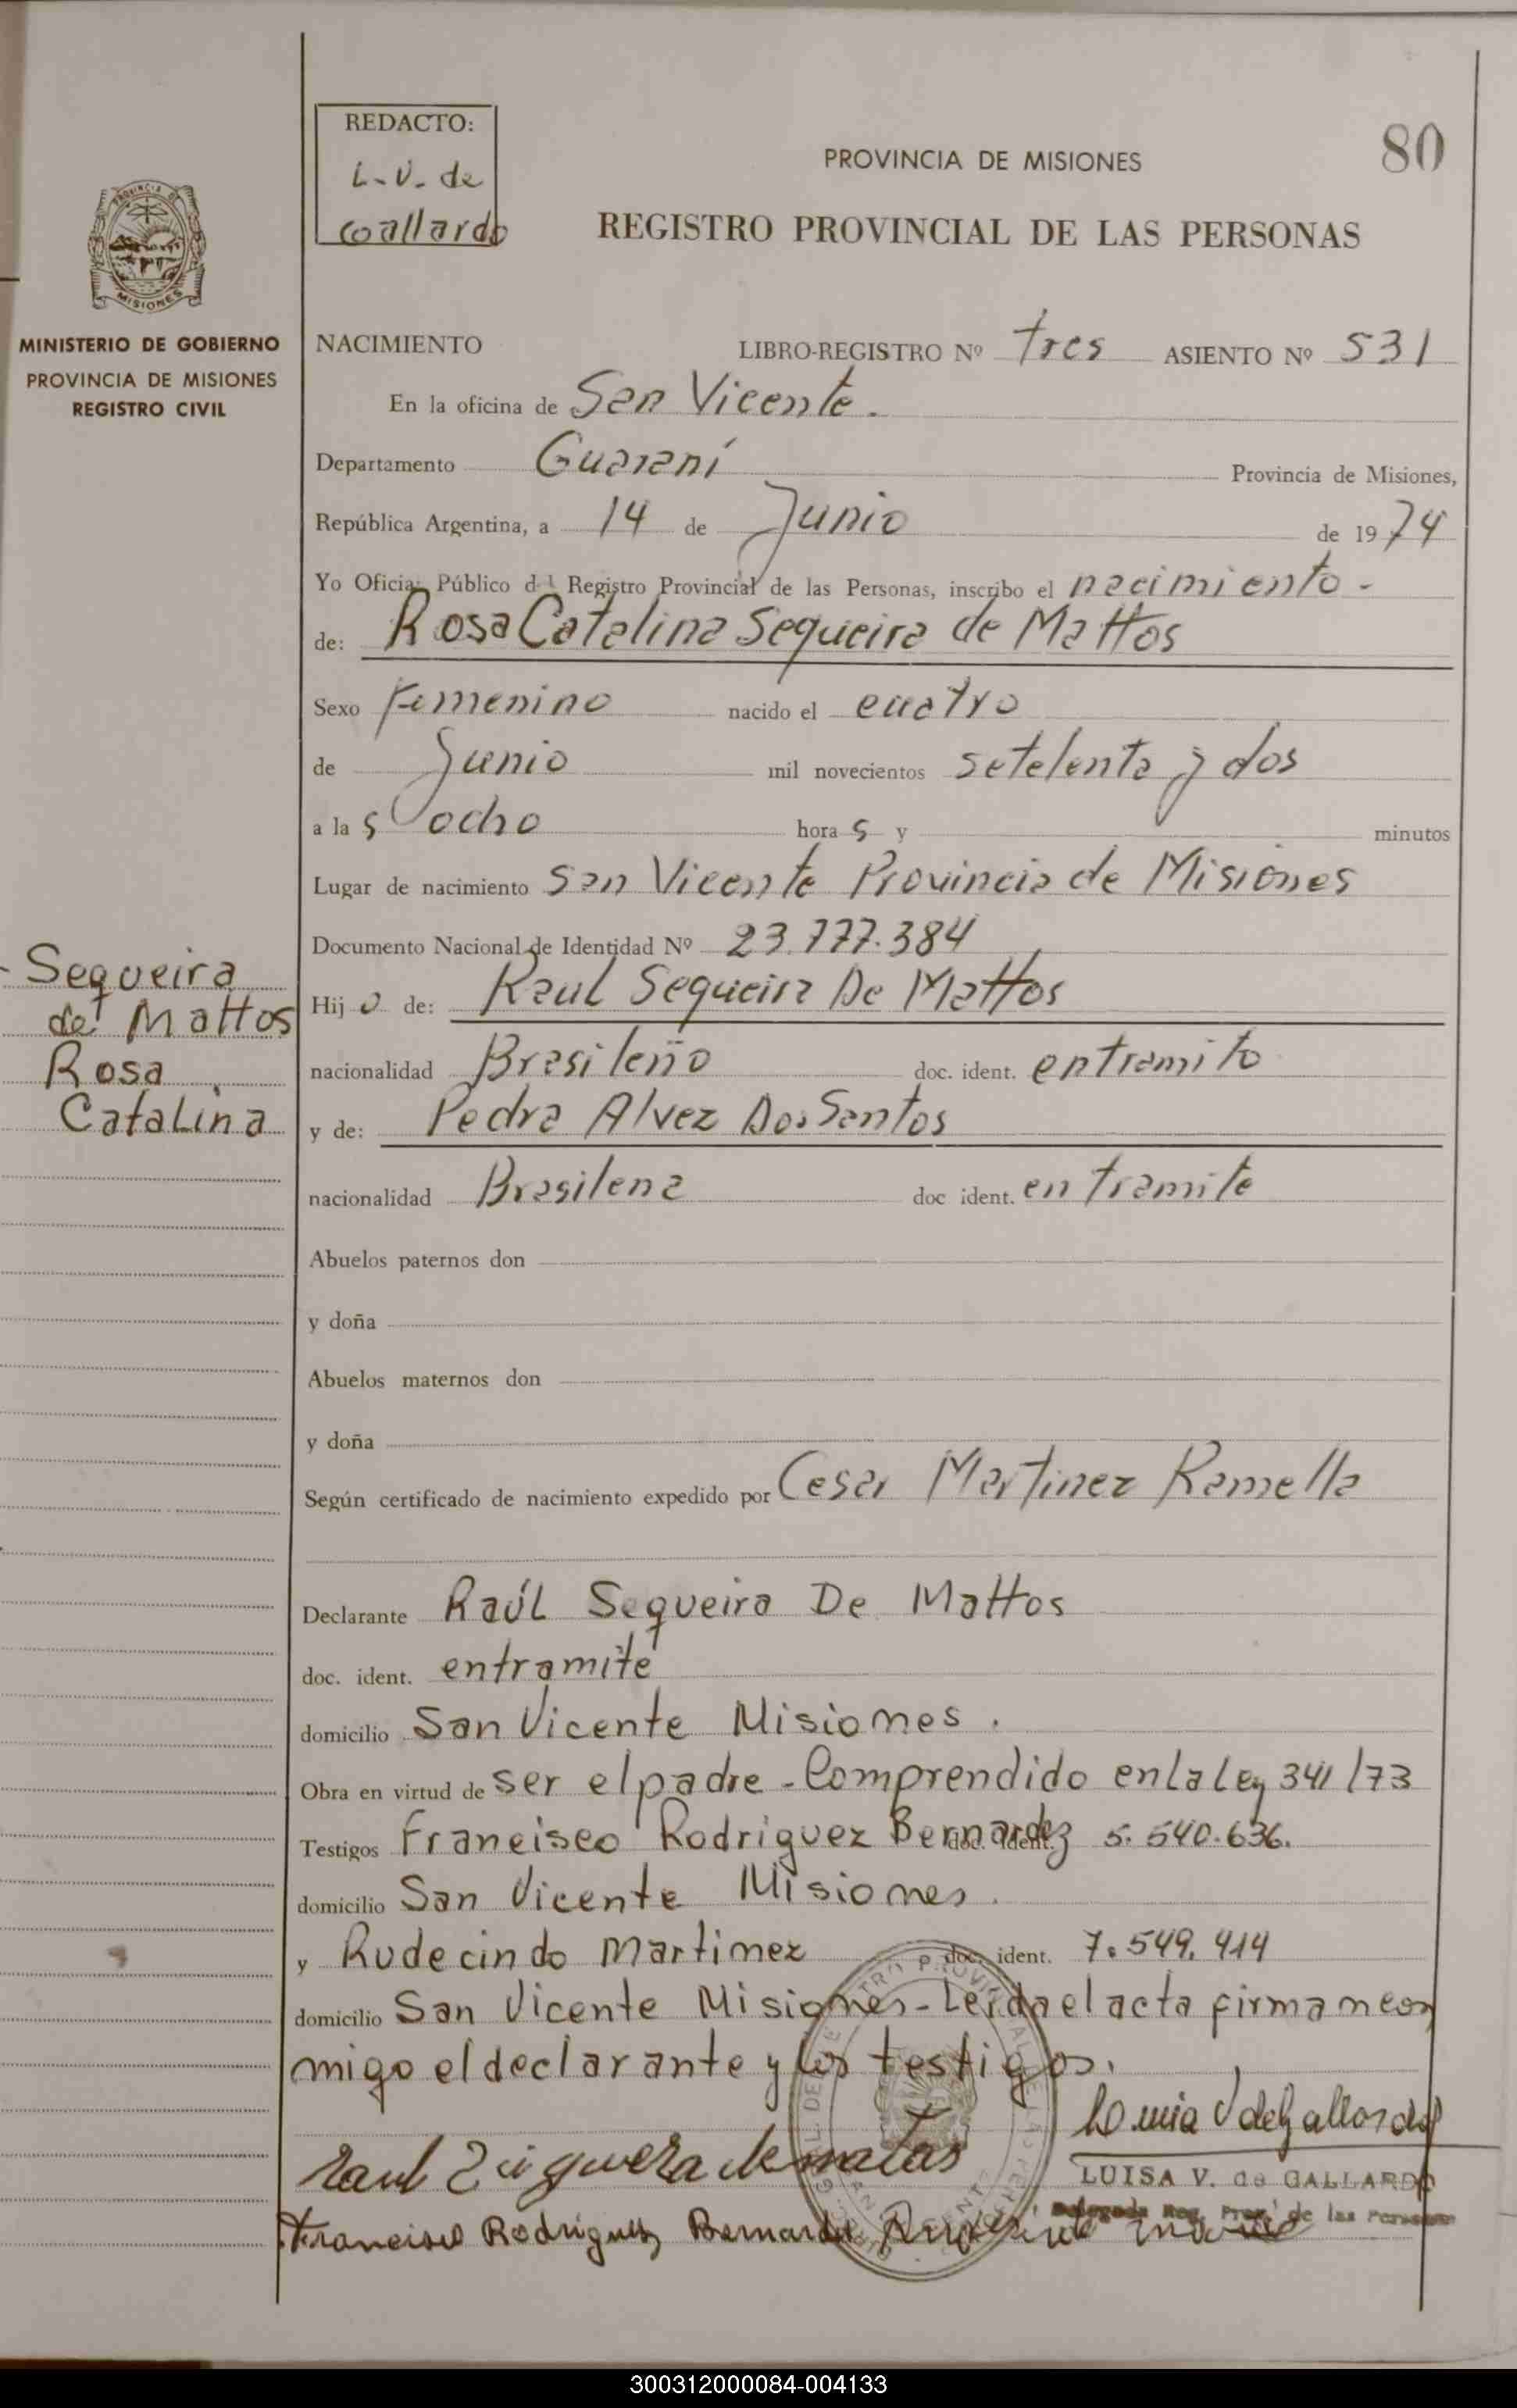 REDACTO:
L.V. de
Gallardo
80
PROVINCIA DE MISIONES
REGISTRO PROVINCIAL DE LAS PERSONAS
MISIONES
MINISTERIO DE GOBIERNO
PROVINCIA DE MISIONES
REGISTRO CIVIL
NACIMIENTO LIBRO-REGISTRO Nº tres ASIENTO Nº 531
En la oficina de San Vicente.
Departamento Guaraní Provincia de Misiones,
República Argentina, a 14 de Junio de 1974
Yo Oficial Público del Registro Provincial de las Personas, inscribo el nacimiento -
de: Rosa Catalina Sequeira de Mattos
Sexo Femenino nacido el cuatro
de Junio mil novecientos setelenta y dos
a las ocho horas y minutos
Lugar de nacimiento San Vicente Provincia de Misiones
Documento Nacional de Identidad Nº 23.777.384
Sequeira
de Mattos
Rosa
Catalina
Hijo de: Raul Sequeira De Mattos
nacionalidad Brasileño doc. ident. entramito
y de: Pedra Alvez Dos Santos
nacionalidad Brasilena doc ident. en tramite
Abuelos paternos don
y doña
Abuelos maternos don
y doña
Según certificado de nacimiento expedido por Cesar Martinez Ramella
Declarante Raúl Sequeira De Mattos
doc. ident. entramite
domicilio San Vicente Misiones.
Obra en virtud de ser el padre - Comprendido en la Ley 341/73
Testigos Francisco Rodriguez Bernardez doc. ident. 5.540.636.
domicilio San Vicente Misiones.
y Rudecindo Martinez doc. ident. 7.549.414
domicilio San Vicente Misiones - Leida el acta firman con
migo el declarante y los testigos.
Luisa V de Gallardo
LUISA V. de GALLARDO
Delegada Reg. Prov. de las Personas
Francisco Rodriguez Bernardez
300312000084-004133